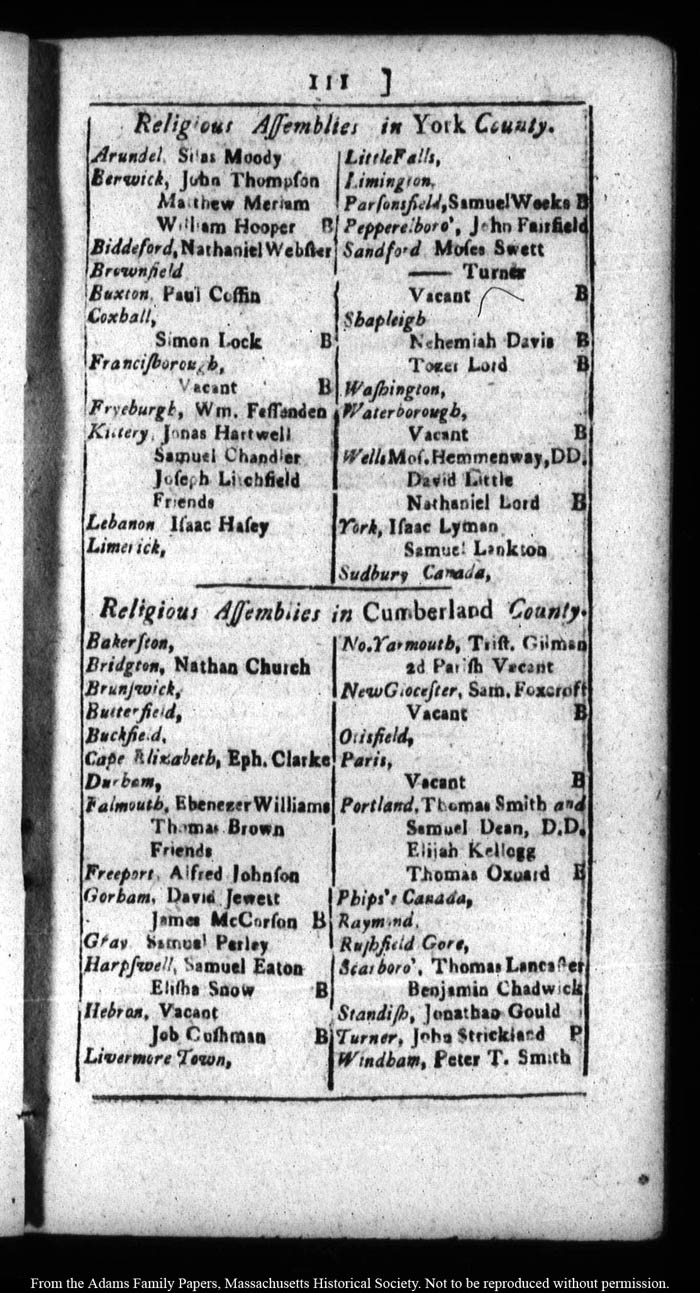 111 ]
Religious Aſſemblies in York County.
Arundel, Silas Moody
Berwick, John Thompſon
Matthew Meriam
William Hooper B
Biddeford, Nathaniel Webſter
Brownfield
Buxton, Paul Coffin
Coxhall,
Simon Lock B
Franciſborough,
Vacant B
Fryeburgh, Wm. Feſſenden
Kittery, Jonas Hartwell
Samuel Chandler
Joſeph Litchfield
Friends
Lebanon Iſaac Haſey
Limerick,
Little Falls,
Limington,
Parſonsfield, Samuel Weeks B
Pepperelboro', John Fairfield
Sandford Moſes Swett
—— Turner
Vacant B
Shapleigh
Nehemiah Davis B
Tozer Lord B
Waſhington,
Waterborough,
Vacant B
Wells Moſ. Hemmenway, DD.
David Little
Nathaniel Lord B
York, Iſaac Lyman
Samuel Lankton
Sudbury Canada,
Religious Aſſemblies in Cumberland County.
Bakerſton,
Bridgton, Nathan Church
Brunſwick,
Butterfield,
Buckfield,
Cape Elizabeth, Eph. Clarke
Durham,
Falmouth, Ebenezer Williams
Thomas Brown
Friends
Freeport, Alfred Johnſon
Gorham, David Jewett
James McCorſon B
Gray Samuel Perley
Harpſwell, Samuel Eaton
Eliſha Snow B
Hebron, Vacant
Job Cuſhman B
Livermore Town,
No. Yarmouth, Triſt. Gilman
2d Pariſh Vacant
New Gloceſter, Sam. Foxcroft
Vacant B
Otisfield,
Paris,
Vacant B
Portland, Thomas Smith and
Samuel Dean, D.D.
Elijah Kellogg
Thomas Oxnard E
Phips's Canada,
Raymond,
Ruſhfield Gore,
Scarboro', Thomas Lancaſter
Benjamin Chadwick
Standiſh, Jonathan Gould
Turner, John Strickland P
Windham, Peter T. Smith
From the Adams Family Papers, Massachusetts Historical Society. Not to be reproduced without permission.